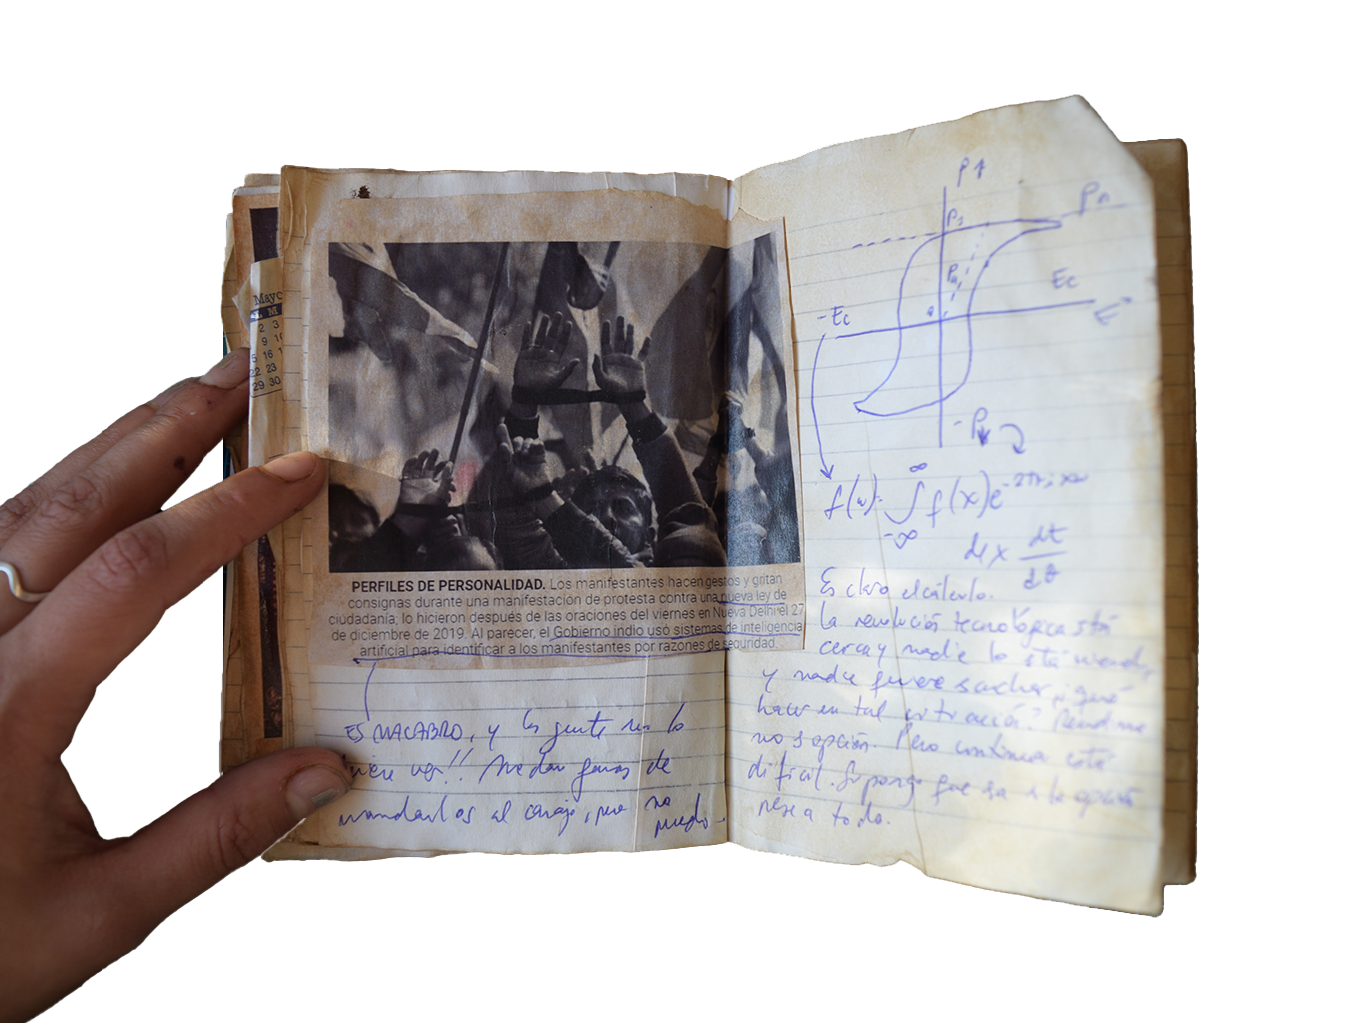 Mayo
L M
2 3
9 10
5 16 1
22 23
29 30
PERFILES DE PERSONALIDAD. Los manifestantes hacen gestos y gritan
consignas durante una manifestación de protesta contra una nueva ley de
ciudadanía, lo hicieron después de las oraciones del viernes en Nueva Delhi el 27
de diciembre de 2019. Al parecer, el Gobierno indio usó sistemas de inteligencia
artificial para identificar a los manifestantes por razones de seguridad.
ES MACABRO, y la gente no lo
quiere ver!! Me dan ganas de
mandarlos al carajo, pero no
puedo.
P
Ps
Ec
-Ec
E
f(w)= ∫ f(x)e
∞
-∞
dt
dθ
Es claro el cálculo.
la revolución tecnológica está
cerca y nadie lo está viendo,
y nadie quiere escuchar, ¿qué
hacer en tal situación? Rendirme
no es opción. Pero continuar está
difícil. Supongo que esa es la opción
pese a todo.